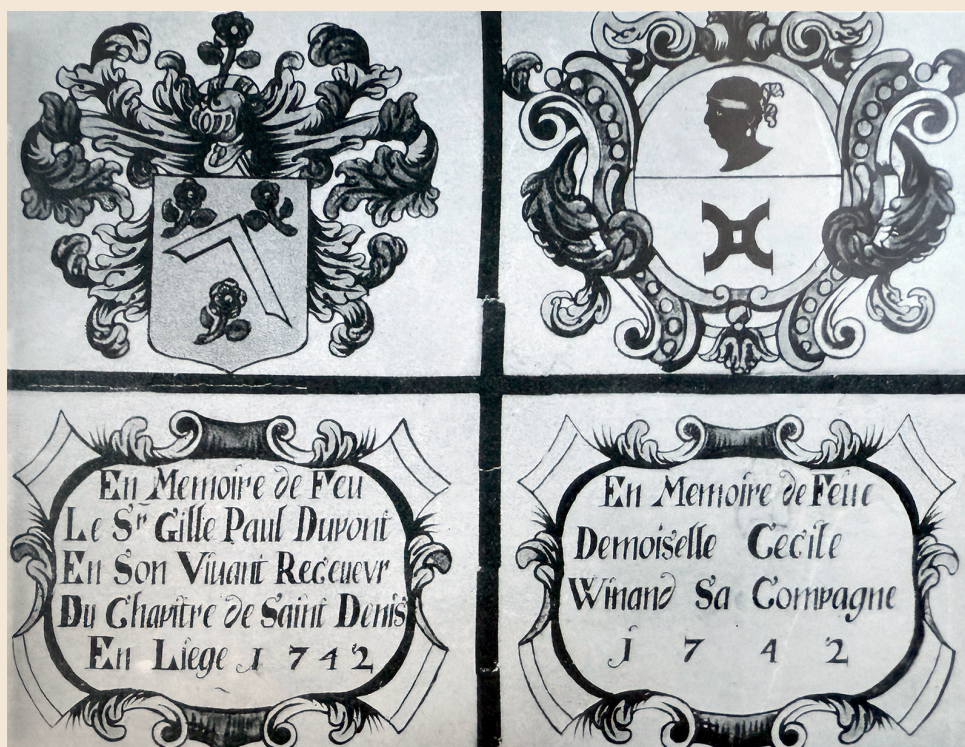 En Memoire de Feu
Le Sr Gille Paul Dupont
En Son Viuant Receuevr
Du Chapitre de Saint Denis
En Liege 1742
En Memoire de Feue
Demoiselle Cecile
Winand Sa Compagne
1742